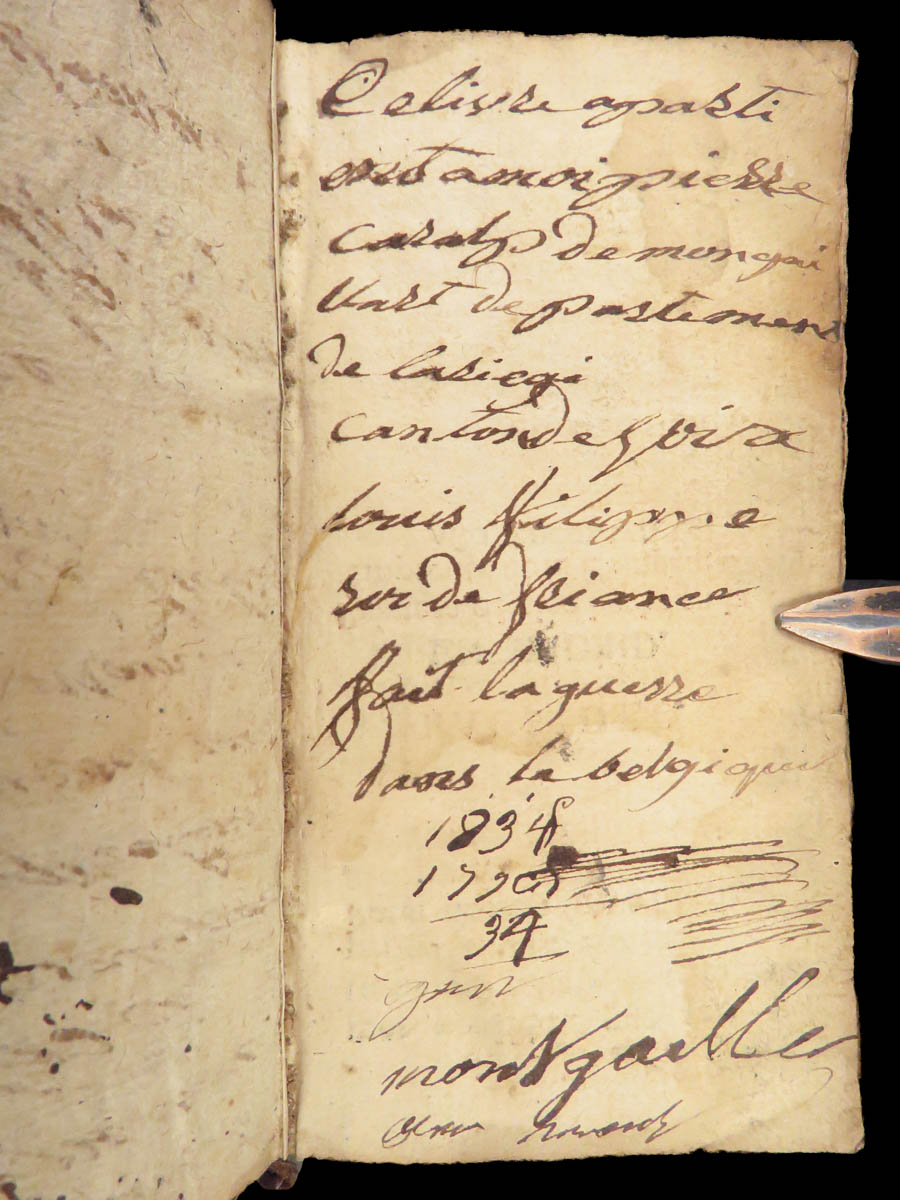 Celivre aparti
ent amoi pierre
caralp demongai
llart departement
de lariegi
canton de foix
louis ffilippe
roi de ffrance
fait la guerre
dans la belgique
1834
34
montgaller